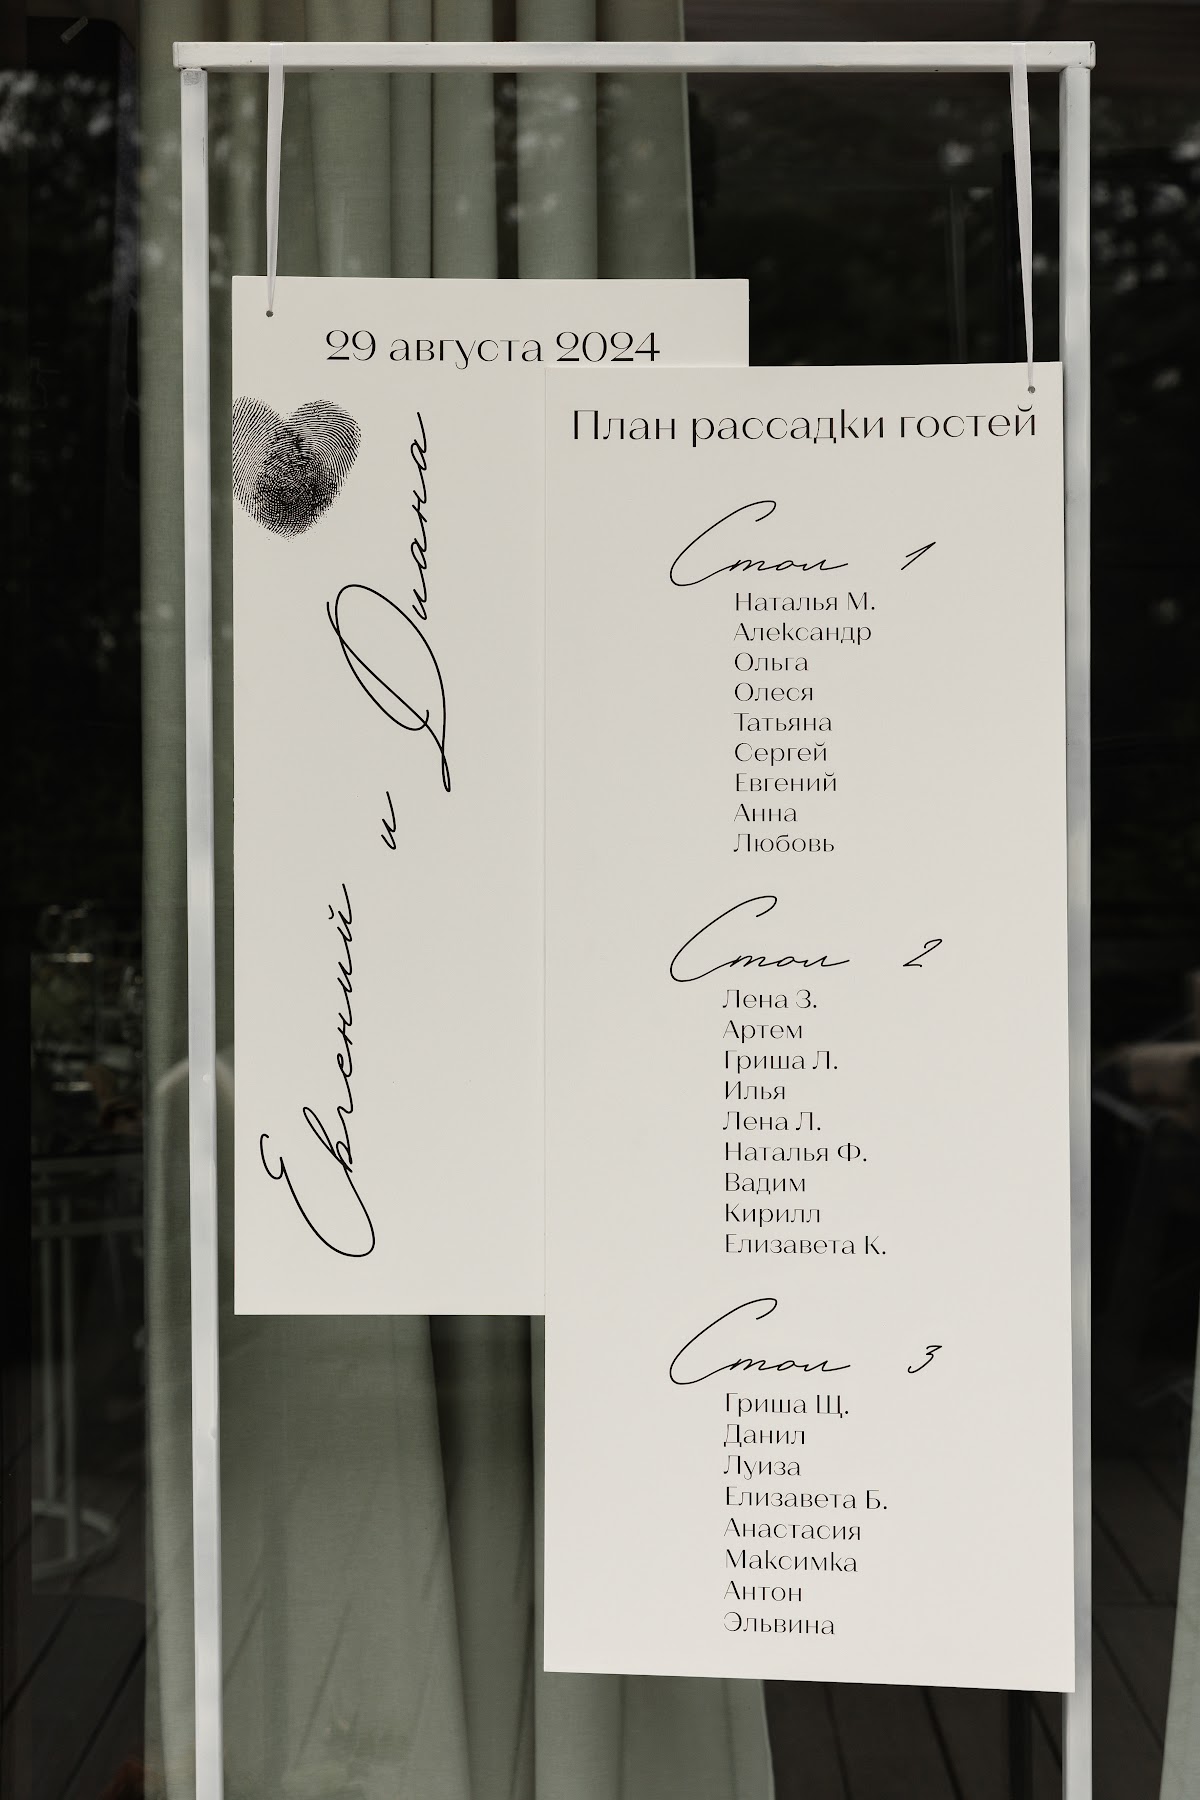 29 августа 2024
Евгений и Диана
План рассадки гостей
Стол 1
Наталья М.
Александр
Ольга
Олеся
Татьяна
Сергей
Евгений
Анна
Любовь
Стол 2
Лена З.
Артем
Гриша Л.
Илья
Лена Л.
Наталья Ф.
Вадим
Кирилл
Елизавета К.
Стол 3
Гриша Щ.
Данил
Луиза
Елизавета Б.
Анастасия
Максимка
Антон
Эльвина